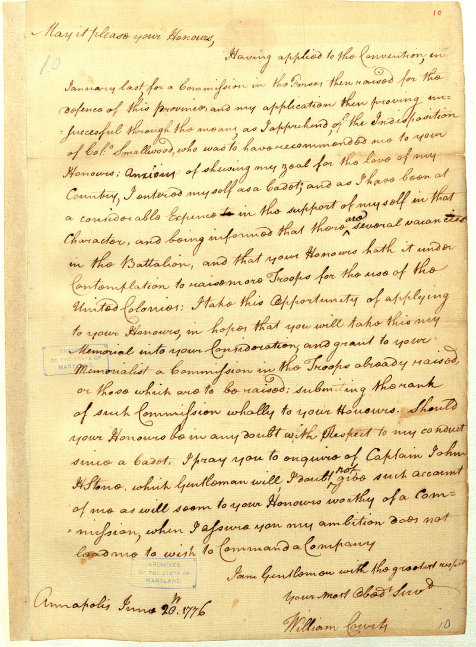 10
May it please your Honours,
10
Having applied to the Convention, in
January last for a Commission in the Forses then raised for the
defence of this Province, and my application then proving un-
-successful through the means as I apprehend of the Indisposition
of Col.º Smallwood, who was to have recommended me to your
Honours: Anxious of shewing my zeal for the love of my
Country, I entered myself as a Cadet; and as I have been at
a considerable Expence in the support of myself in that
Character, and being informed that there are several vacancies
in the Battalion, and that your Honours hath it under
Contemplation to raise more Troops for the use of the
United Colonies: I take this Opportunity of applying
to your Honours, in hopes that you will take this my
Memorial into your Consideration, and grant to your
Memorialist a Commission in the Troops already raised,
or those which are to be raised: submitting the rank
of such Commission wholly to your Honours. Should
your Honours be in any doubt with Respect to my conduct
since a Cadet, I pray you to enquire of Captain John
H Stone, which Gentleman will I doubt not give such account
of me as will seem to your Honours worthy of a Com-
-mission, when I assure you my ambition does not
lead me to wish to Command a Company
I am Gentlemen with the greatest respect
Your most Obed.t Serv.t
Annapolis June 20.th 1776
William Courts
10
ARCHIVES
OF THE STATE OF
MARYLAND
ARCHIVES
OF THE STATE OF
MARYLAND